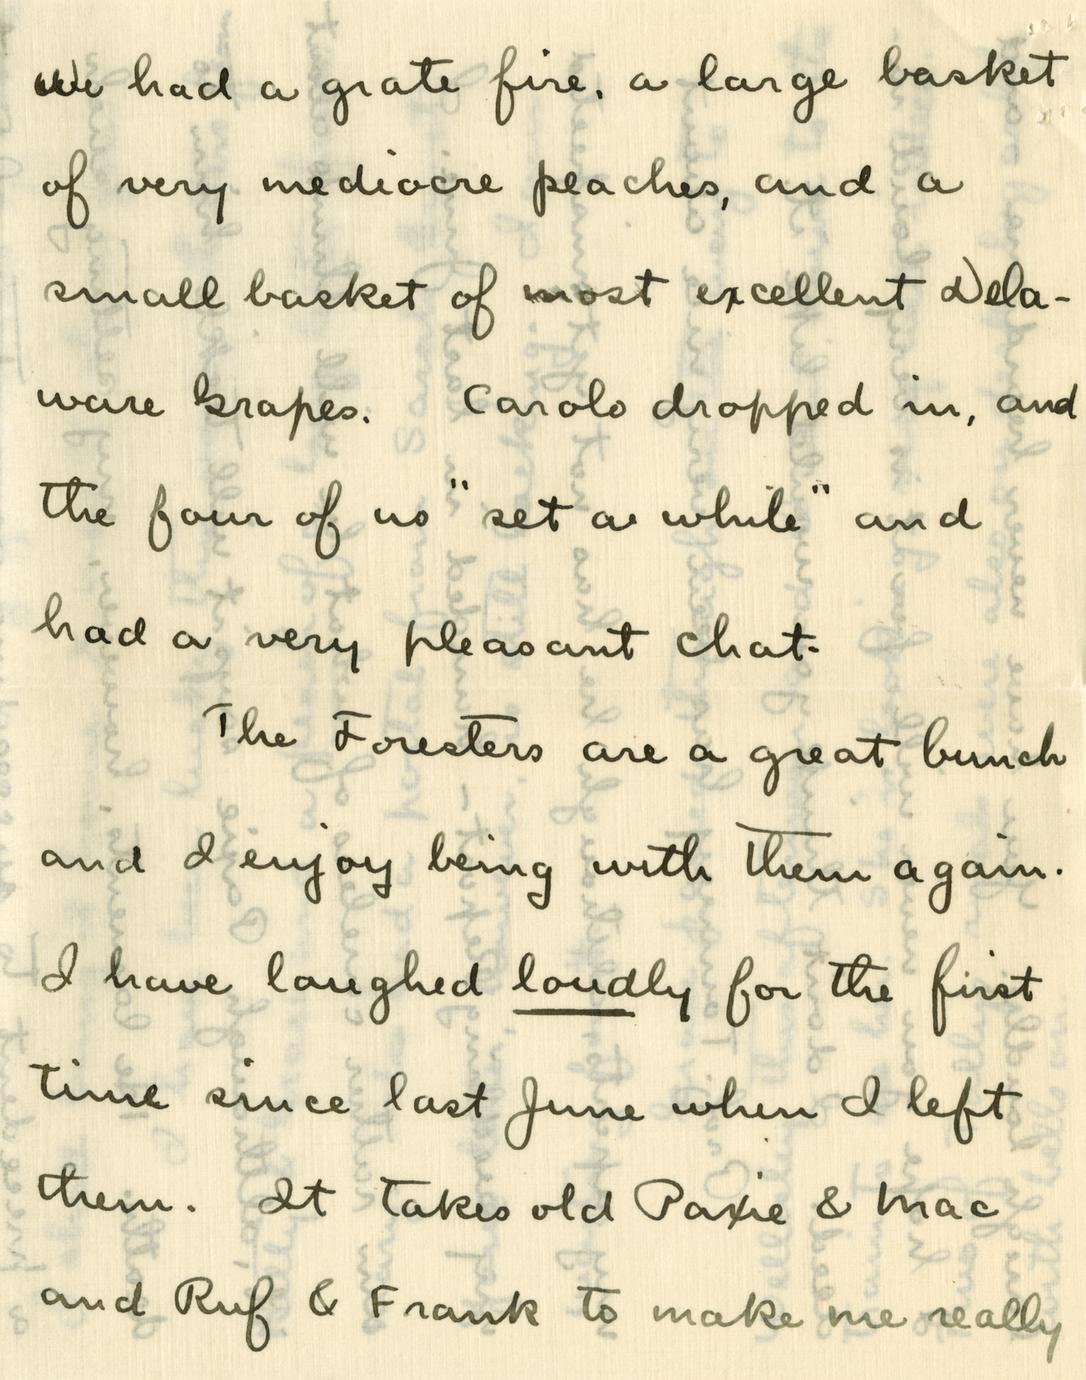 We had a grate fire, a large basket
of very mediocre peaches, and a
small basket of most excellent Dela-
ware Grapes. Carolo dropped in, and
the four of us "set a while" and
had a very pleasant chat.
The Foresters are a great bunch
and I enjoy being with them again.
I have laughed loudly for the first
time since last June when I left
them. It takes old Paxie & Mac
and Ruf & Frank to make me really